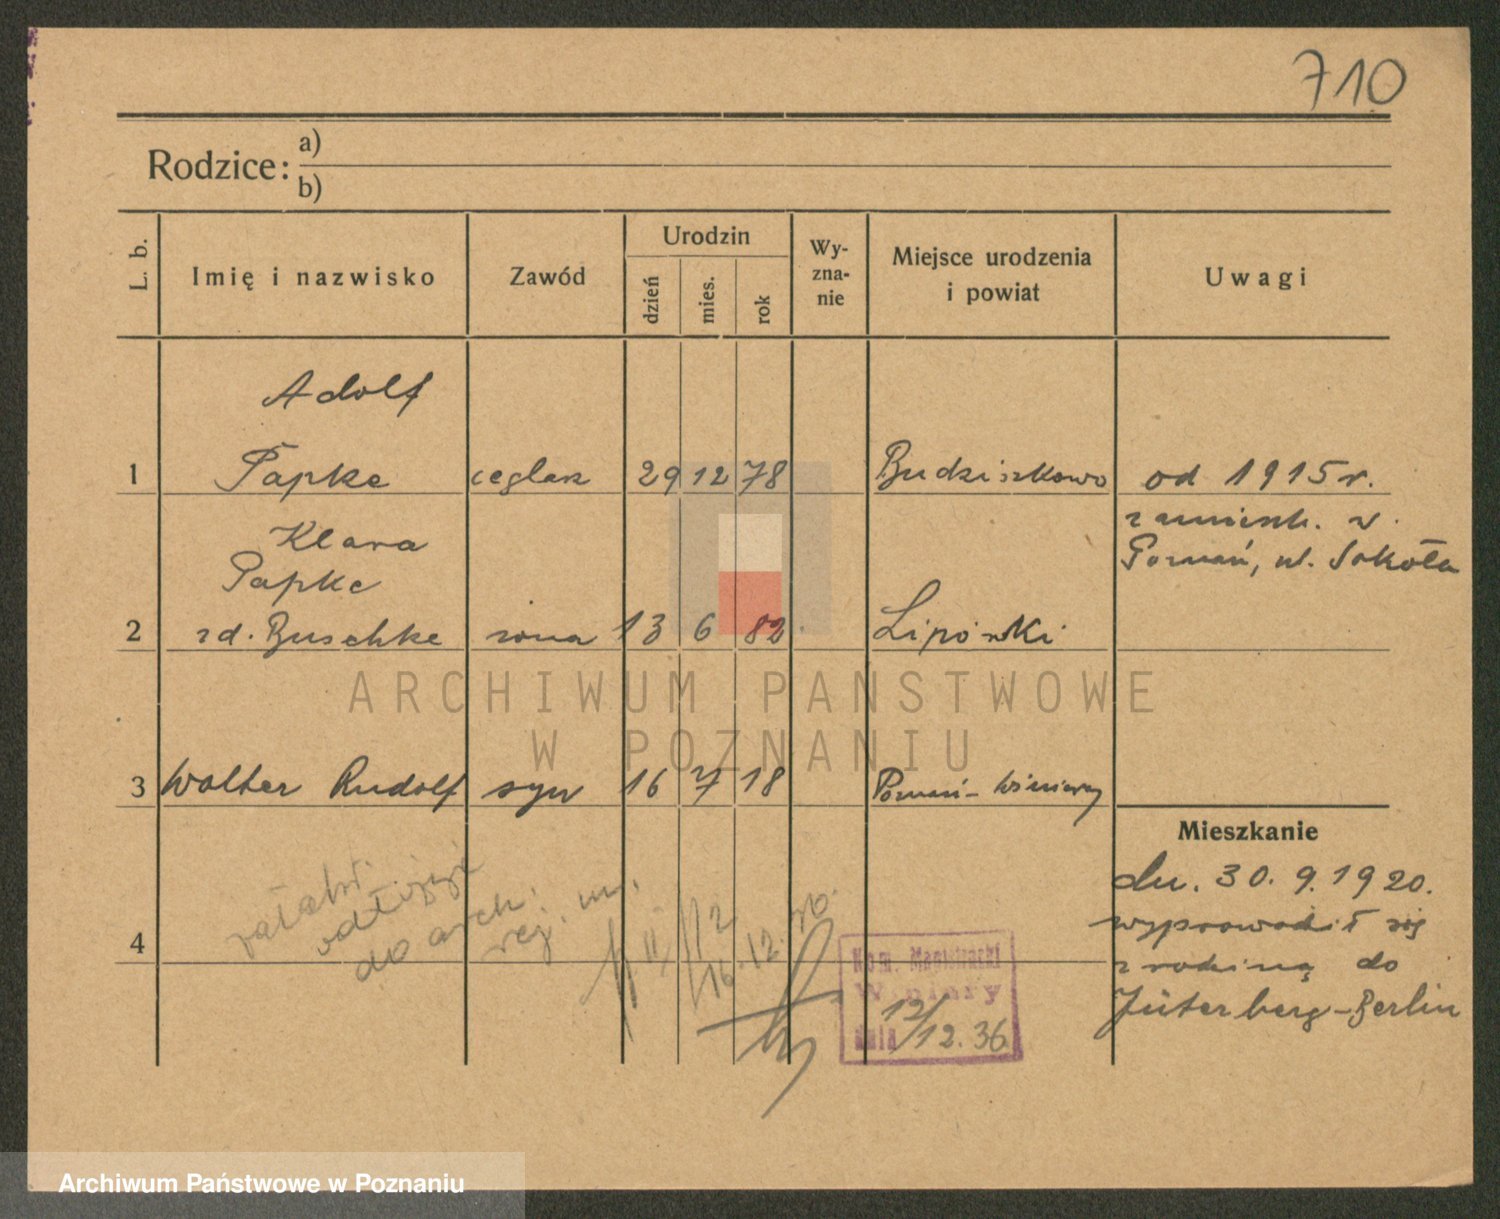 710
Rodzice: a)
b)
L. b.
Imię i nazwisko
Zawód
Urodzin
dzień
mies.
rok
Wy-
zna-
nie
Miejsce urodzenia
i powiat
Uwagi
Adolf
1 Papke ceglarz 29 12 78 Budziszkowo od 1915 r.
zamieszk. w
Poznań, ul. Sokoła
Klara
Papke
2 zd. Buschke żona 13 6 82 Lipówki
ARCHIWUM PAŃSTWOWE
W POZNANIU
3 Walter Rudolf syn 16 7 18 Poznań-Winiary
Mieszkanie
dn. 30.9.1920.
wyprowadził się
z rodziną do
Jüterberg-Berlin
4
do arch.
16.12.
Kom. Magistracki
Winiary
dnia 12/12.36
Archiwum Państwowe w Poznaniu